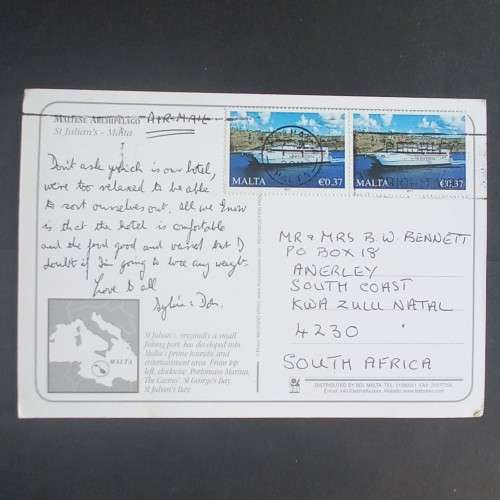 MALTESE ARCHIPELAGO
St Julian's - Malta
AIR-MAIL
Don't ask which is our hotel,
were too relaxed to be able
to sort ourselves out. All we know
is that the hotel is comfortable
and the food good and varied but I
doubt if I'm going to lose any weight.
Love to all
Sylvia & Don.
MALTA
St Julian's, originally a small
fishing port, has developed into
Malta's prime touristic and
entertainment area. From top
left, clockwise: Portomaso Marina,
The Casino, St George's Bay,
St Julian's Bay.
MALTA €0,37
MALTA €0,37
MR & MRS B.W. BENNETT
PO BOX 18
ANERLEY
SOUTH COAST
KWA ZULU NATAL
4230
SOUTH AFRICA
DISTRIBUTED BY BDL MALTA TEL: